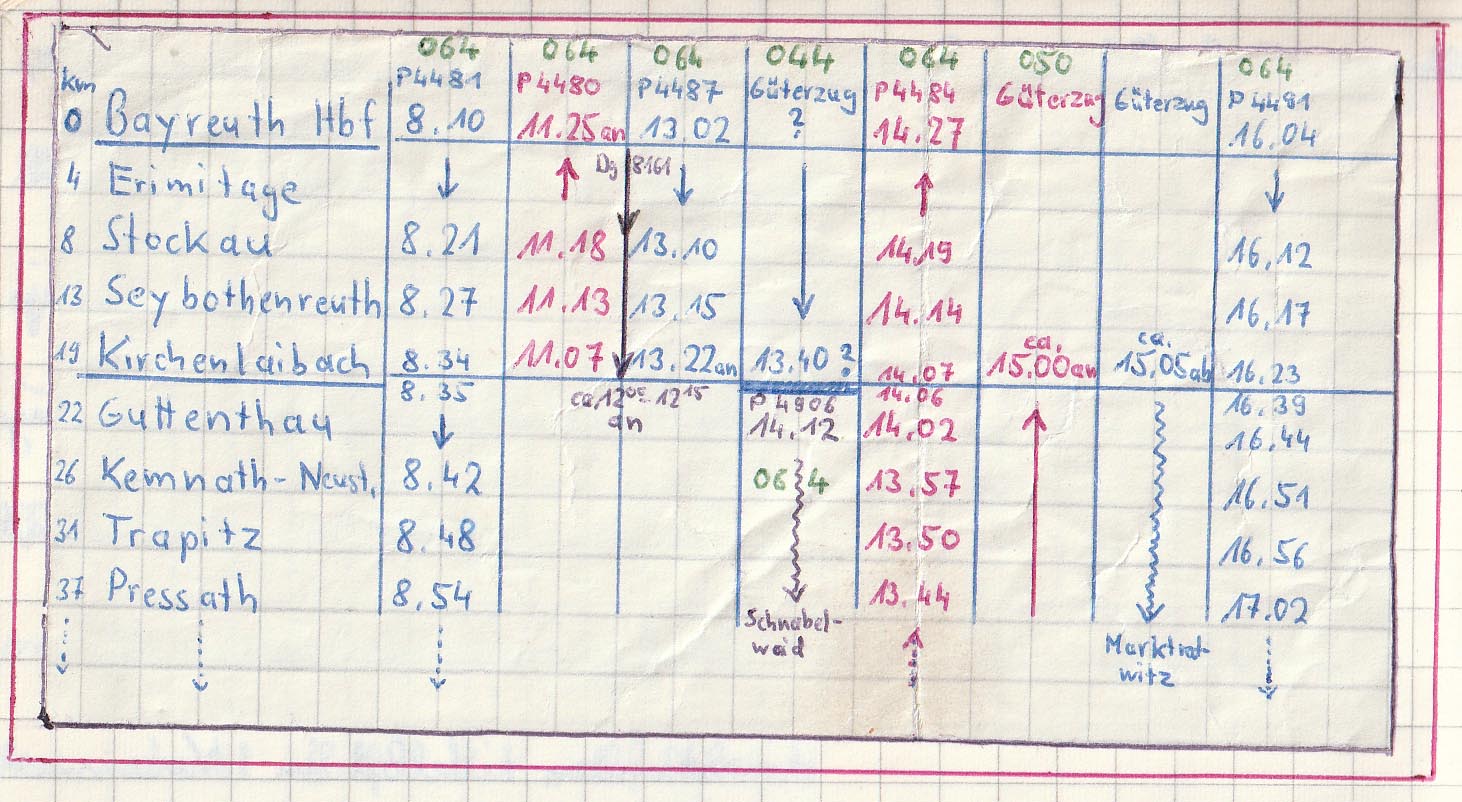 064 064 064 044 064 050 064
km P4481 P4480 P4487 Güterzug P4484 Güterzug Güterzug P4491
0 Bayreuth Hbf 8.10 11.25 an 13.02 ? 14.27 16.04
4 Erimitage Dg 8161
8 Stockau 8.21 11.18 13.10 14.19 16.12
13 Seybothenreuth 8.27 11.13 13.15 14.14 16.17
19 Kirchenlaibach 8.34 11.07 13.22 an 13.40 ? 14.07 ca. 15.00 an ca. 15.05 ab 16.23
8.35 ca 12 05 - 12 15 an P 4906 14.06 16.39
22 Guttenthau 14.12 14.02 16.44
26 Kemnath - Neust. 8.42 064 13.57 16.51
31 Trapitz 8.48 13.50 16.56
37 Pressath 8.54 13.44 17.02
Schnabel-
waid
Marktred-
witz